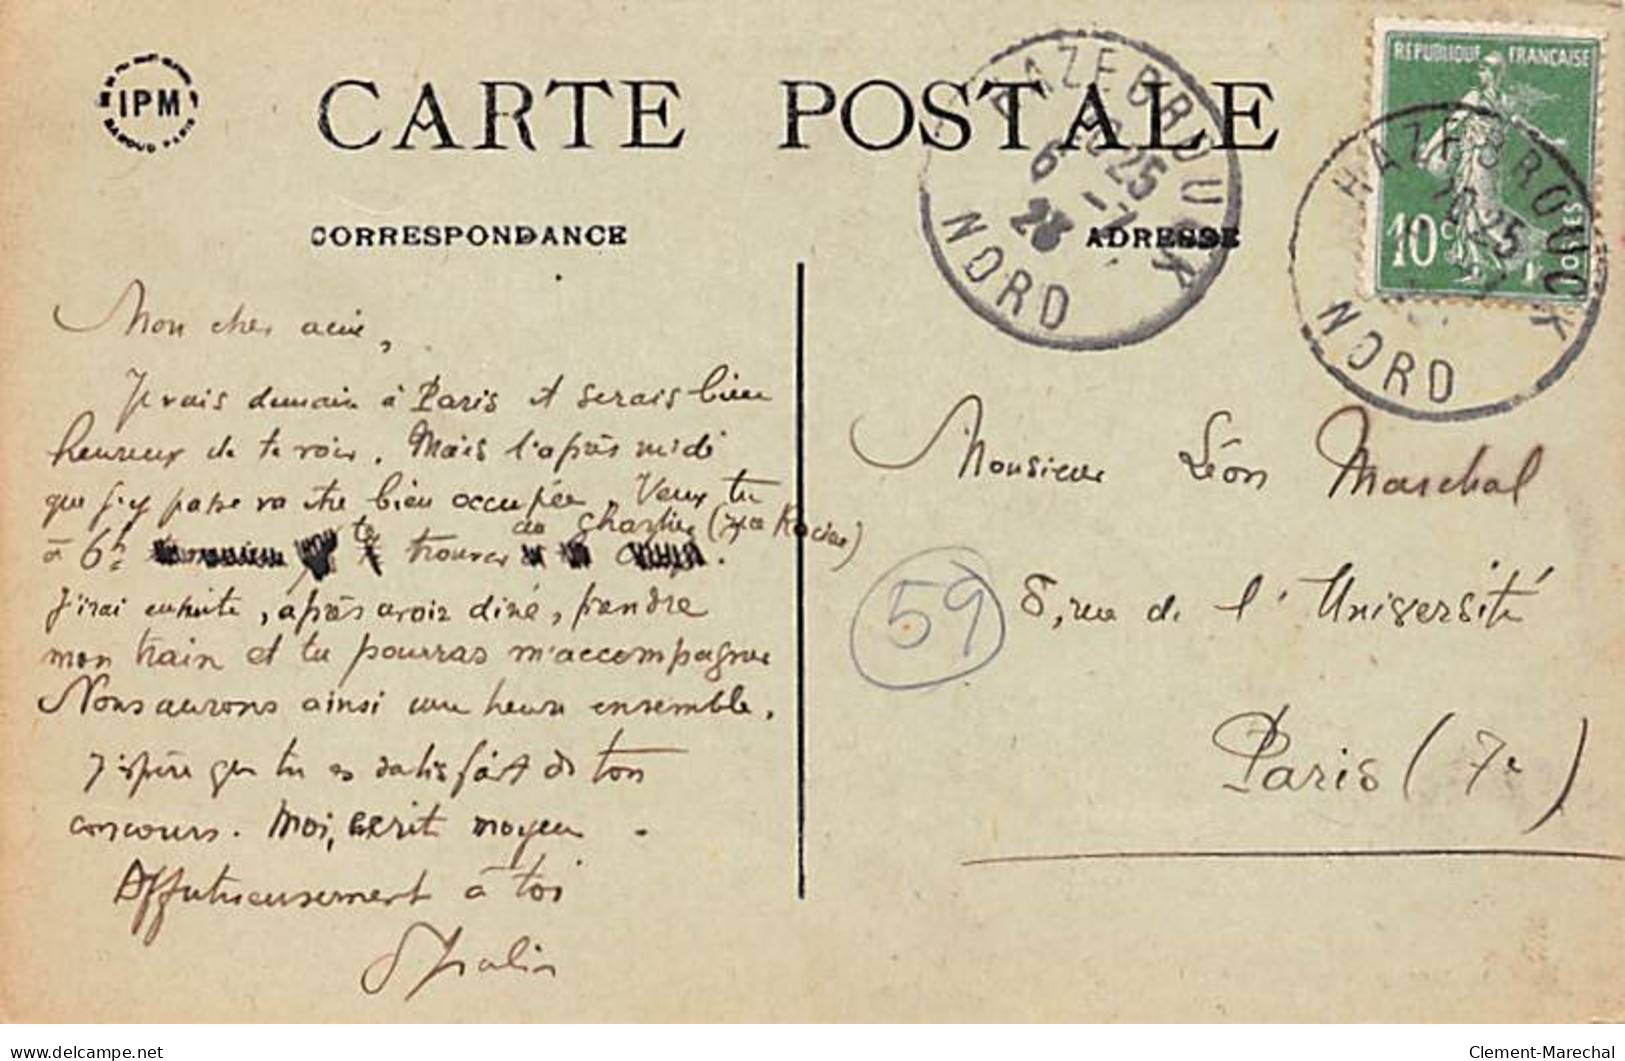 IPM
CARTE POSTALE
CORRESPONDANCE
ADRESSE
HAZEBROUCK
20 25
6 -7
23
NORD
REPUBLIQUE FRANÇAISE
10c
POSTES
HAZEBROUCK
20 25
NORD
Mon cher ami,
Je vais demain à Paris et serais bien
heureux de te voir. Mais l'après midi
que j'y passe va être bien occupée. Veux tu
à 6h te trouver au (rue Racine)
J'irai ensuite, après avoir diné, prendre
mon train et tu pourras m'accompagner
Nous aurons ainsi une heure ensemble.
J'espère que tu es satisfait de ton
concours. Moi, écrit moyen.
Affectueusement à toi
Monsieur Léon Marchal
8, rue de l'Université
Paris (7e)
59
delcampe.net
Clement-Marechal